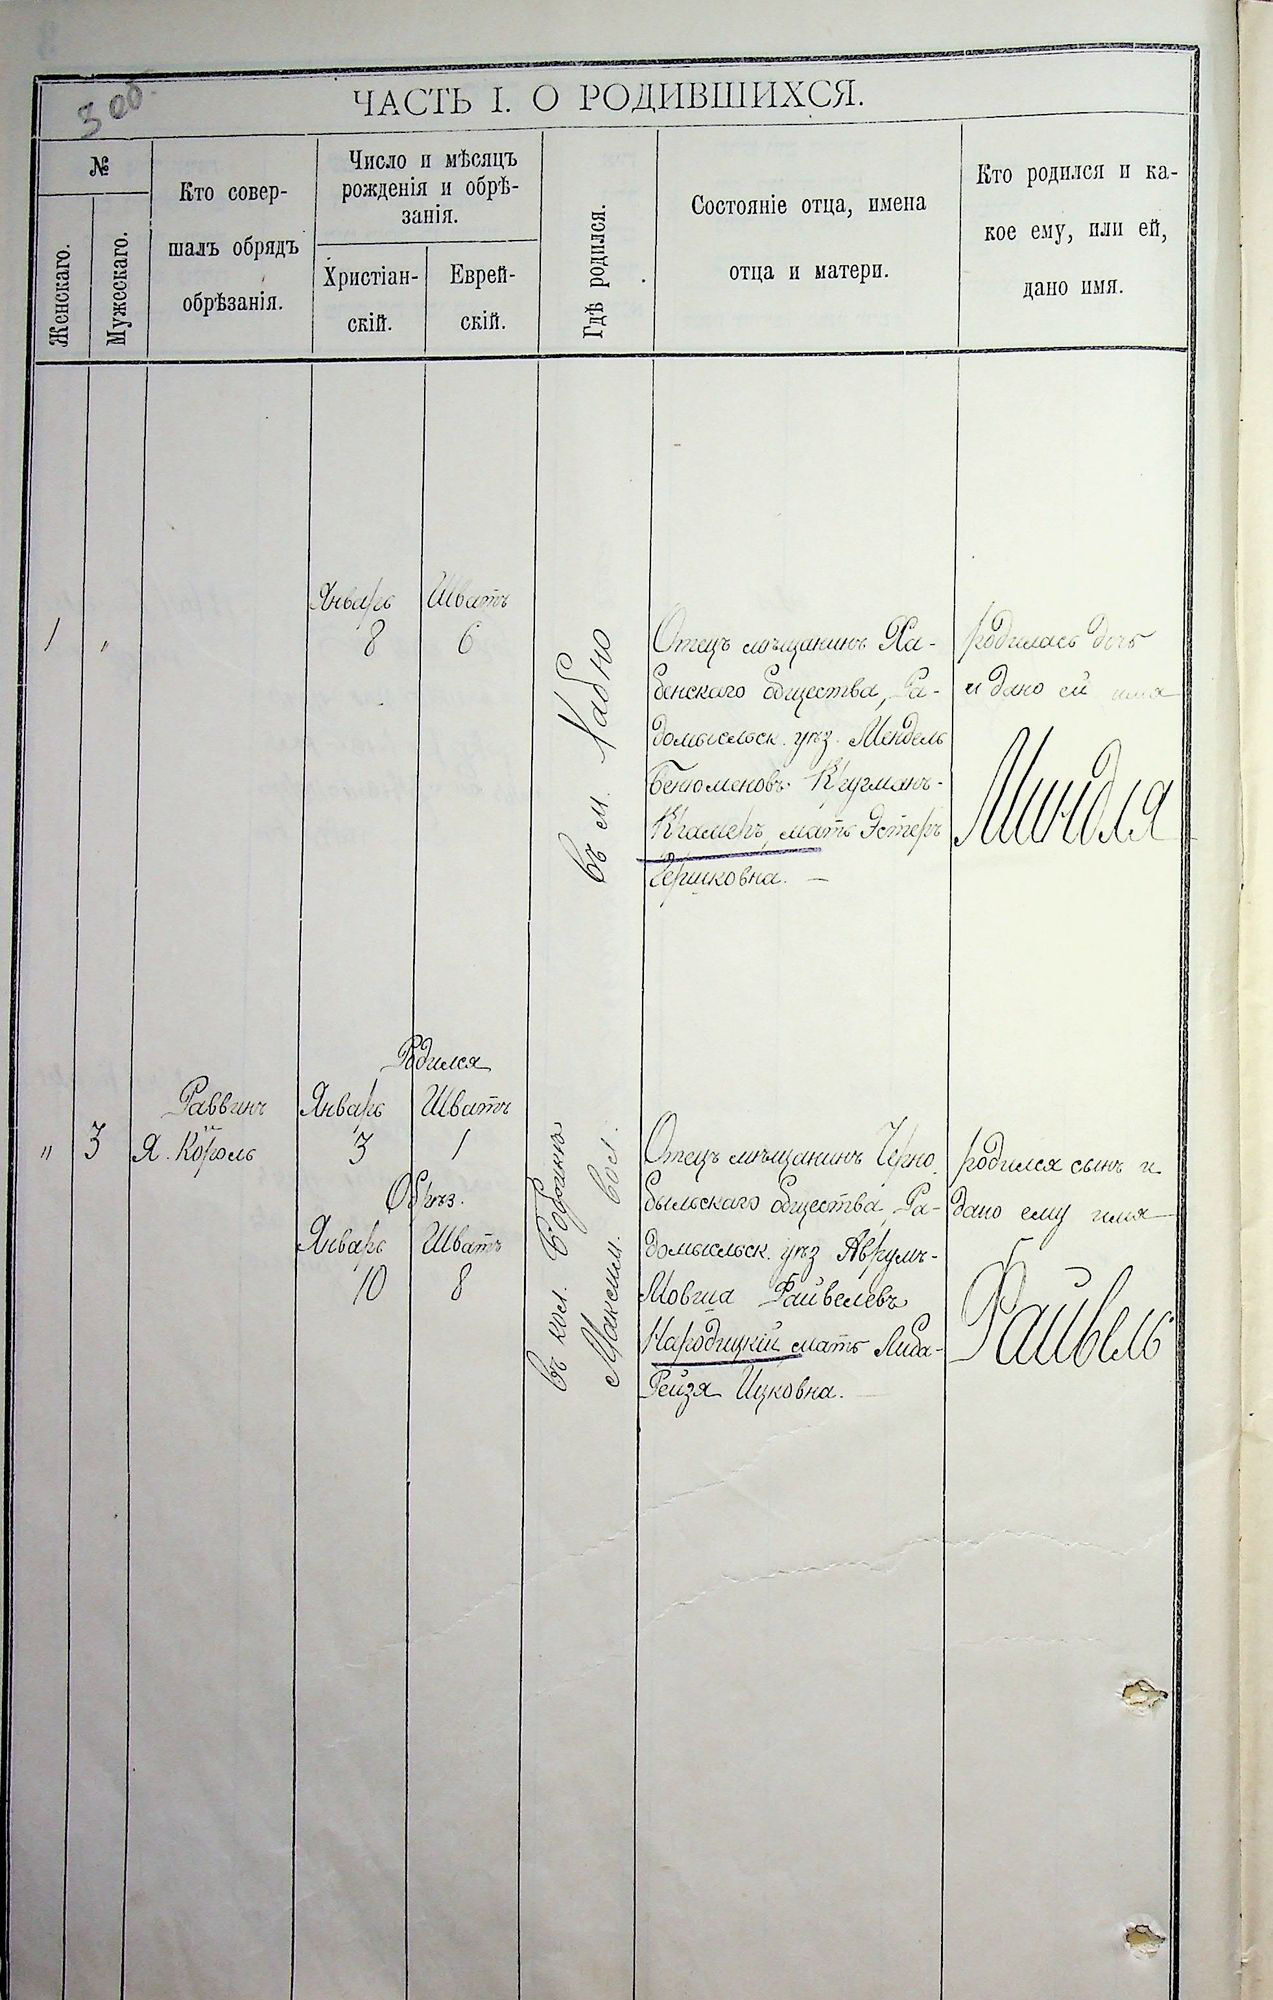 3 об.
ЧАСТЬ I. О РОДИВШИХСЯ.
№
Женскаго.
Мужескаго.
Кто совер-
шалъ обрядъ
обрѣзанія.
Число и мѣсяцъ
рожденія и обрѣ-
занія.
Христіан-
скій.
Еврей-
скій.
Гдѣ родился.
Состояніе отца, имена
отца и матери.
Кто родился и ка-
кое ему, или ей,
дано имя.
1
"
Январь
8
Шватъ
6
Въ м. Хабно
Отецъ мѣщанинъ Ха-
бенскаго общества, Ра-
домысльск. уѣз. Мендель
Бенюменовъ Кругманъ-
Крамеръ, мать Эстеръ
Гершковна. —
родилась дочь
и дано ей имя
Миндля
"
3
Раввинъ
Я. Король
Родился
Январь
3
Шватъ
1
Обрѣз.
Январь
10
Шватъ
8
Въ кол.
Максим. вол.
Отецъ мѣщанинъ Черно
быльскаго общества, Ра-
домысльск. уѣз Аврумъ-
Мовша Файвелевъ
Народицкій, мать Либа-
Рейзя Ицковна.
родился сынъ и
дано ему имя
Файвель